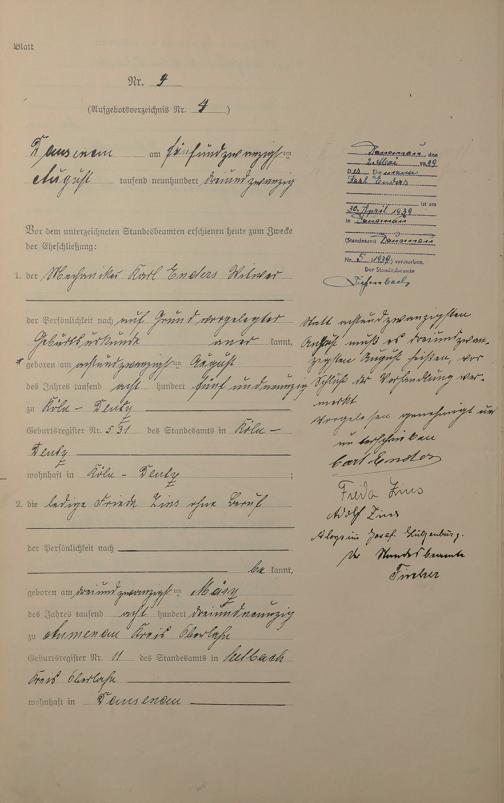 Blatt
Nr. 4
(Aufgebotsverzeichnis Nr. 4)
am fünfundzwanzigsten
August tausend neunhundert dreiundzwanzig
Vor dem unterzeichneten Standesbeamten erschienen heute zum Zwecke
der Eheschließung:
1. der Mechaniker Karl Enders Witwer
der Persönlichkeit nach auf Grund vorgelegter
Geburtsurkunde aner kannt,
geboren am achtundzwanzigsten August
des Jahres tausend acht hundert fünf und neunzig
zu Köln - Deutz
Geburtsregister Nr. 531 des Standesamts in Köln -
Deutz
wohnhaft in Köln - Deutz ;
2. die ledige Frieda Zins ohne Beruf
der Persönlichkeit nach
be kannt,
geboren am dreiundzwanzigsten März
des Jahres tausend acht hundert dreiundneunzig
zu Aumenau Kreis Oberlahn
Geburtsregister Nr. 11 des Standesamts in Seelbach
Kreis Oberlahn
wohnhaft in
den
2. Mai 1939
Karl Enders
ist am
30. April 1939
in
(Standesamt
Nr. 5/1939) verstorben.
Der Standesbeamte
Statt achtundzwanzigsten
August muß es dreiundzwan-
zigsten August heißen, vor
Schluß der Verhandlung ver-
merkt
Vorgelesen genehmigt und
unterschrieben
Carl Enders
Frieda Zins
Adolf Zins
Josef
Der Standesbeamte
Fischer